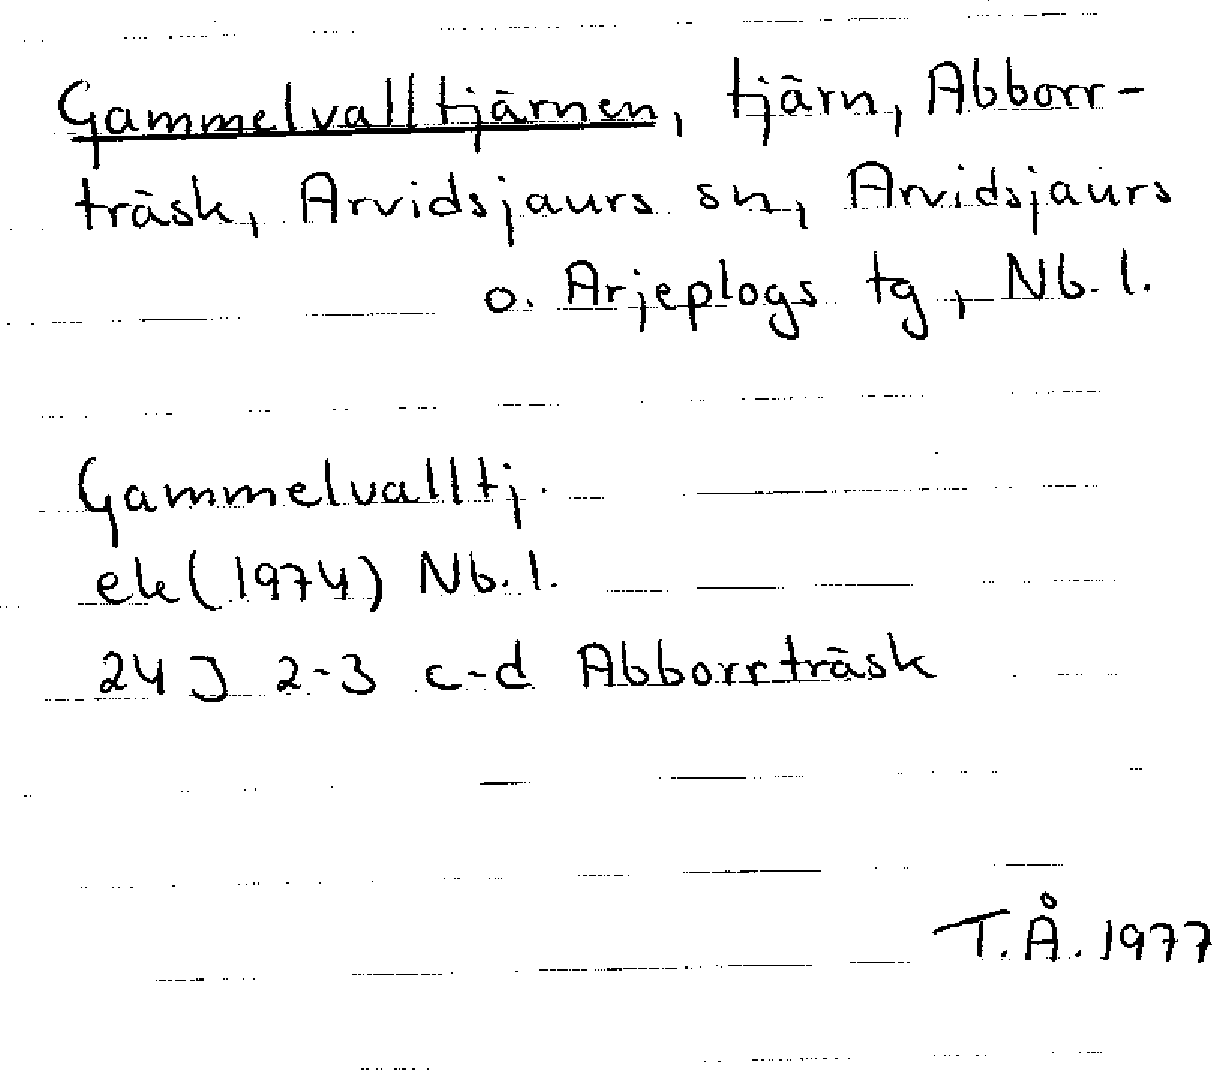 Gammelvalltjärnen, tjärn, Abborr-
träsk, Arvidsjaurs sn, Arvidsjaurs
o. Arjeplogs tg, Nb. l.
Gammelvalltj.
ek (1974) Nb. l.
24 J 2-3 c-d Abborrträsk
T.Å. 1977